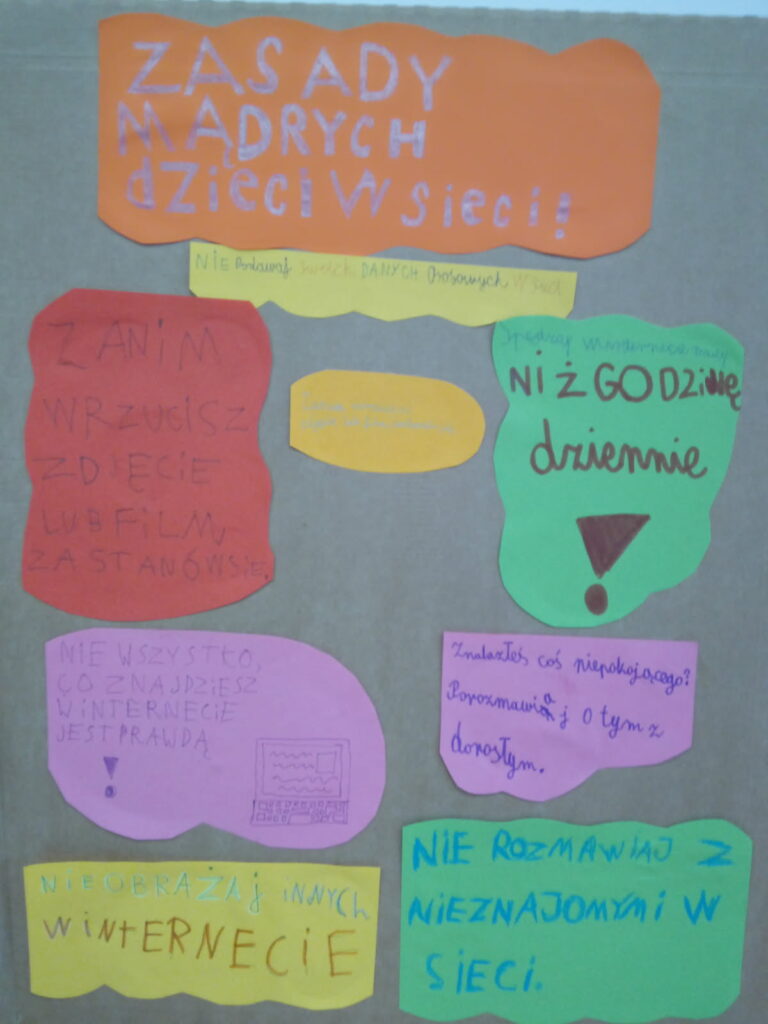 ZASADY
MĄDRYCH
dzieci w sieci!
NIE Podawaj swoich DANYCH Osobowych W sieci
ZANIM
WRZUCISZ
ZDIĘCIE
LUB FILM,
ZASTANÓW SIĘ.
Spędzaj w internecie mniej
NIŻ GODZINĘ
dziennie
!
NIE WSZYSTKO,
CO ZNAJDZIESZ
W INTERNECIE
JEST PRAWDĄ
!
Znalazłeś coś niepokojącego?
Porozmawiaj o tym z
dorosłym.
NIE OBRAŻAj iNNYCH
W iNtERNECiE
NIE ROZMAWIAJ Z
NIEZNAJOMYMI W
SIECI.